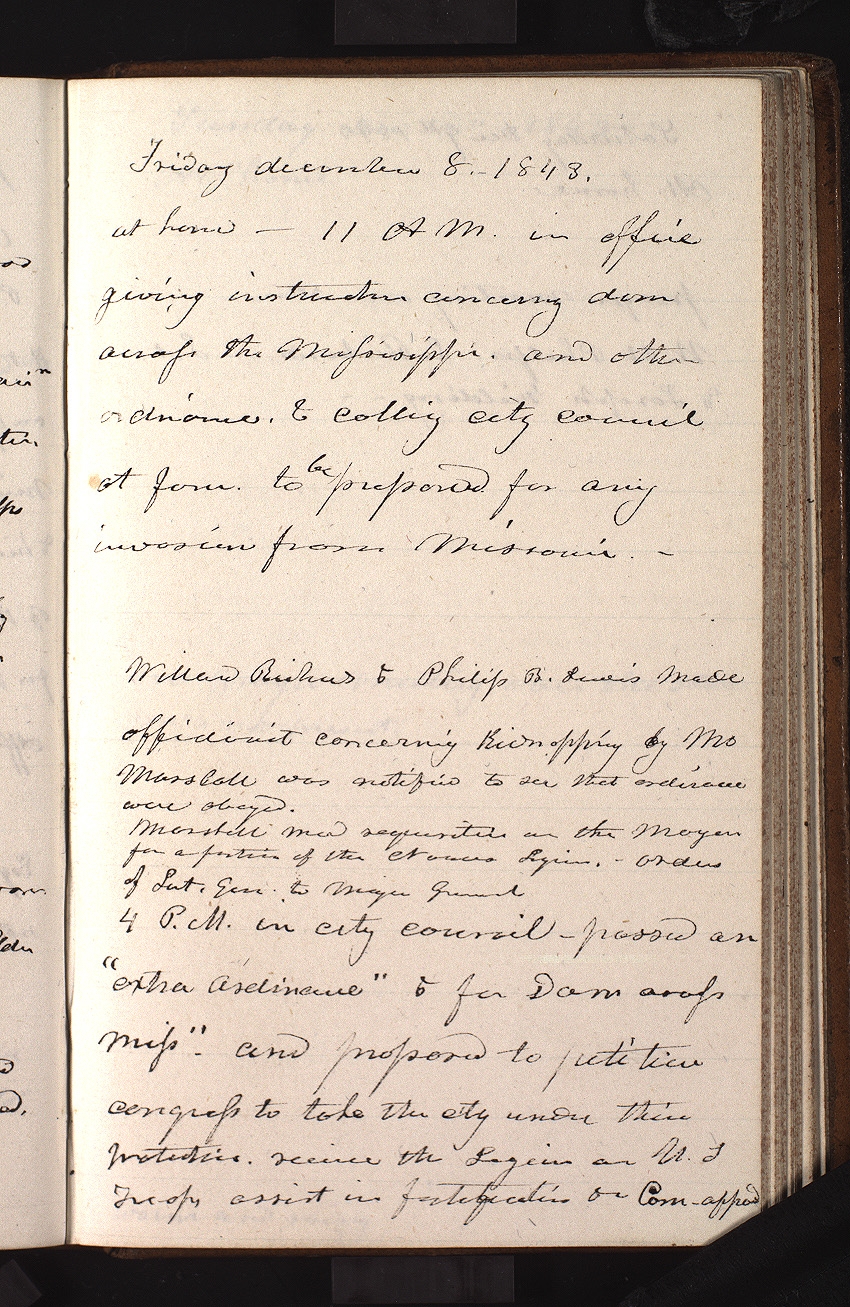 Friday december 8.- 1843.
at home — 11 A M. in office
giving instructin concerng dam
across the Mississippi. and othe
ordnance. & callig city council
at four. to be prepared for any
invasion from Missouri. -
Willard Richards & Philip B. Lewis made
affidavit concernig kidnapping by Mo
Marshall was notified to see that ordinance
were obeyed.
Marshall mad requisition on the Mayor
for a portion of the Nauvoo Legion. - orders
of Lut. Gen. to Major General
4 P.M. in city council - passed an
"extra ordinance" & for Dam across
Miss". and proposed to petition
congress to take the city under their
protection. receive the Legion as U. S
Troops assist in fortification &c Com-appod